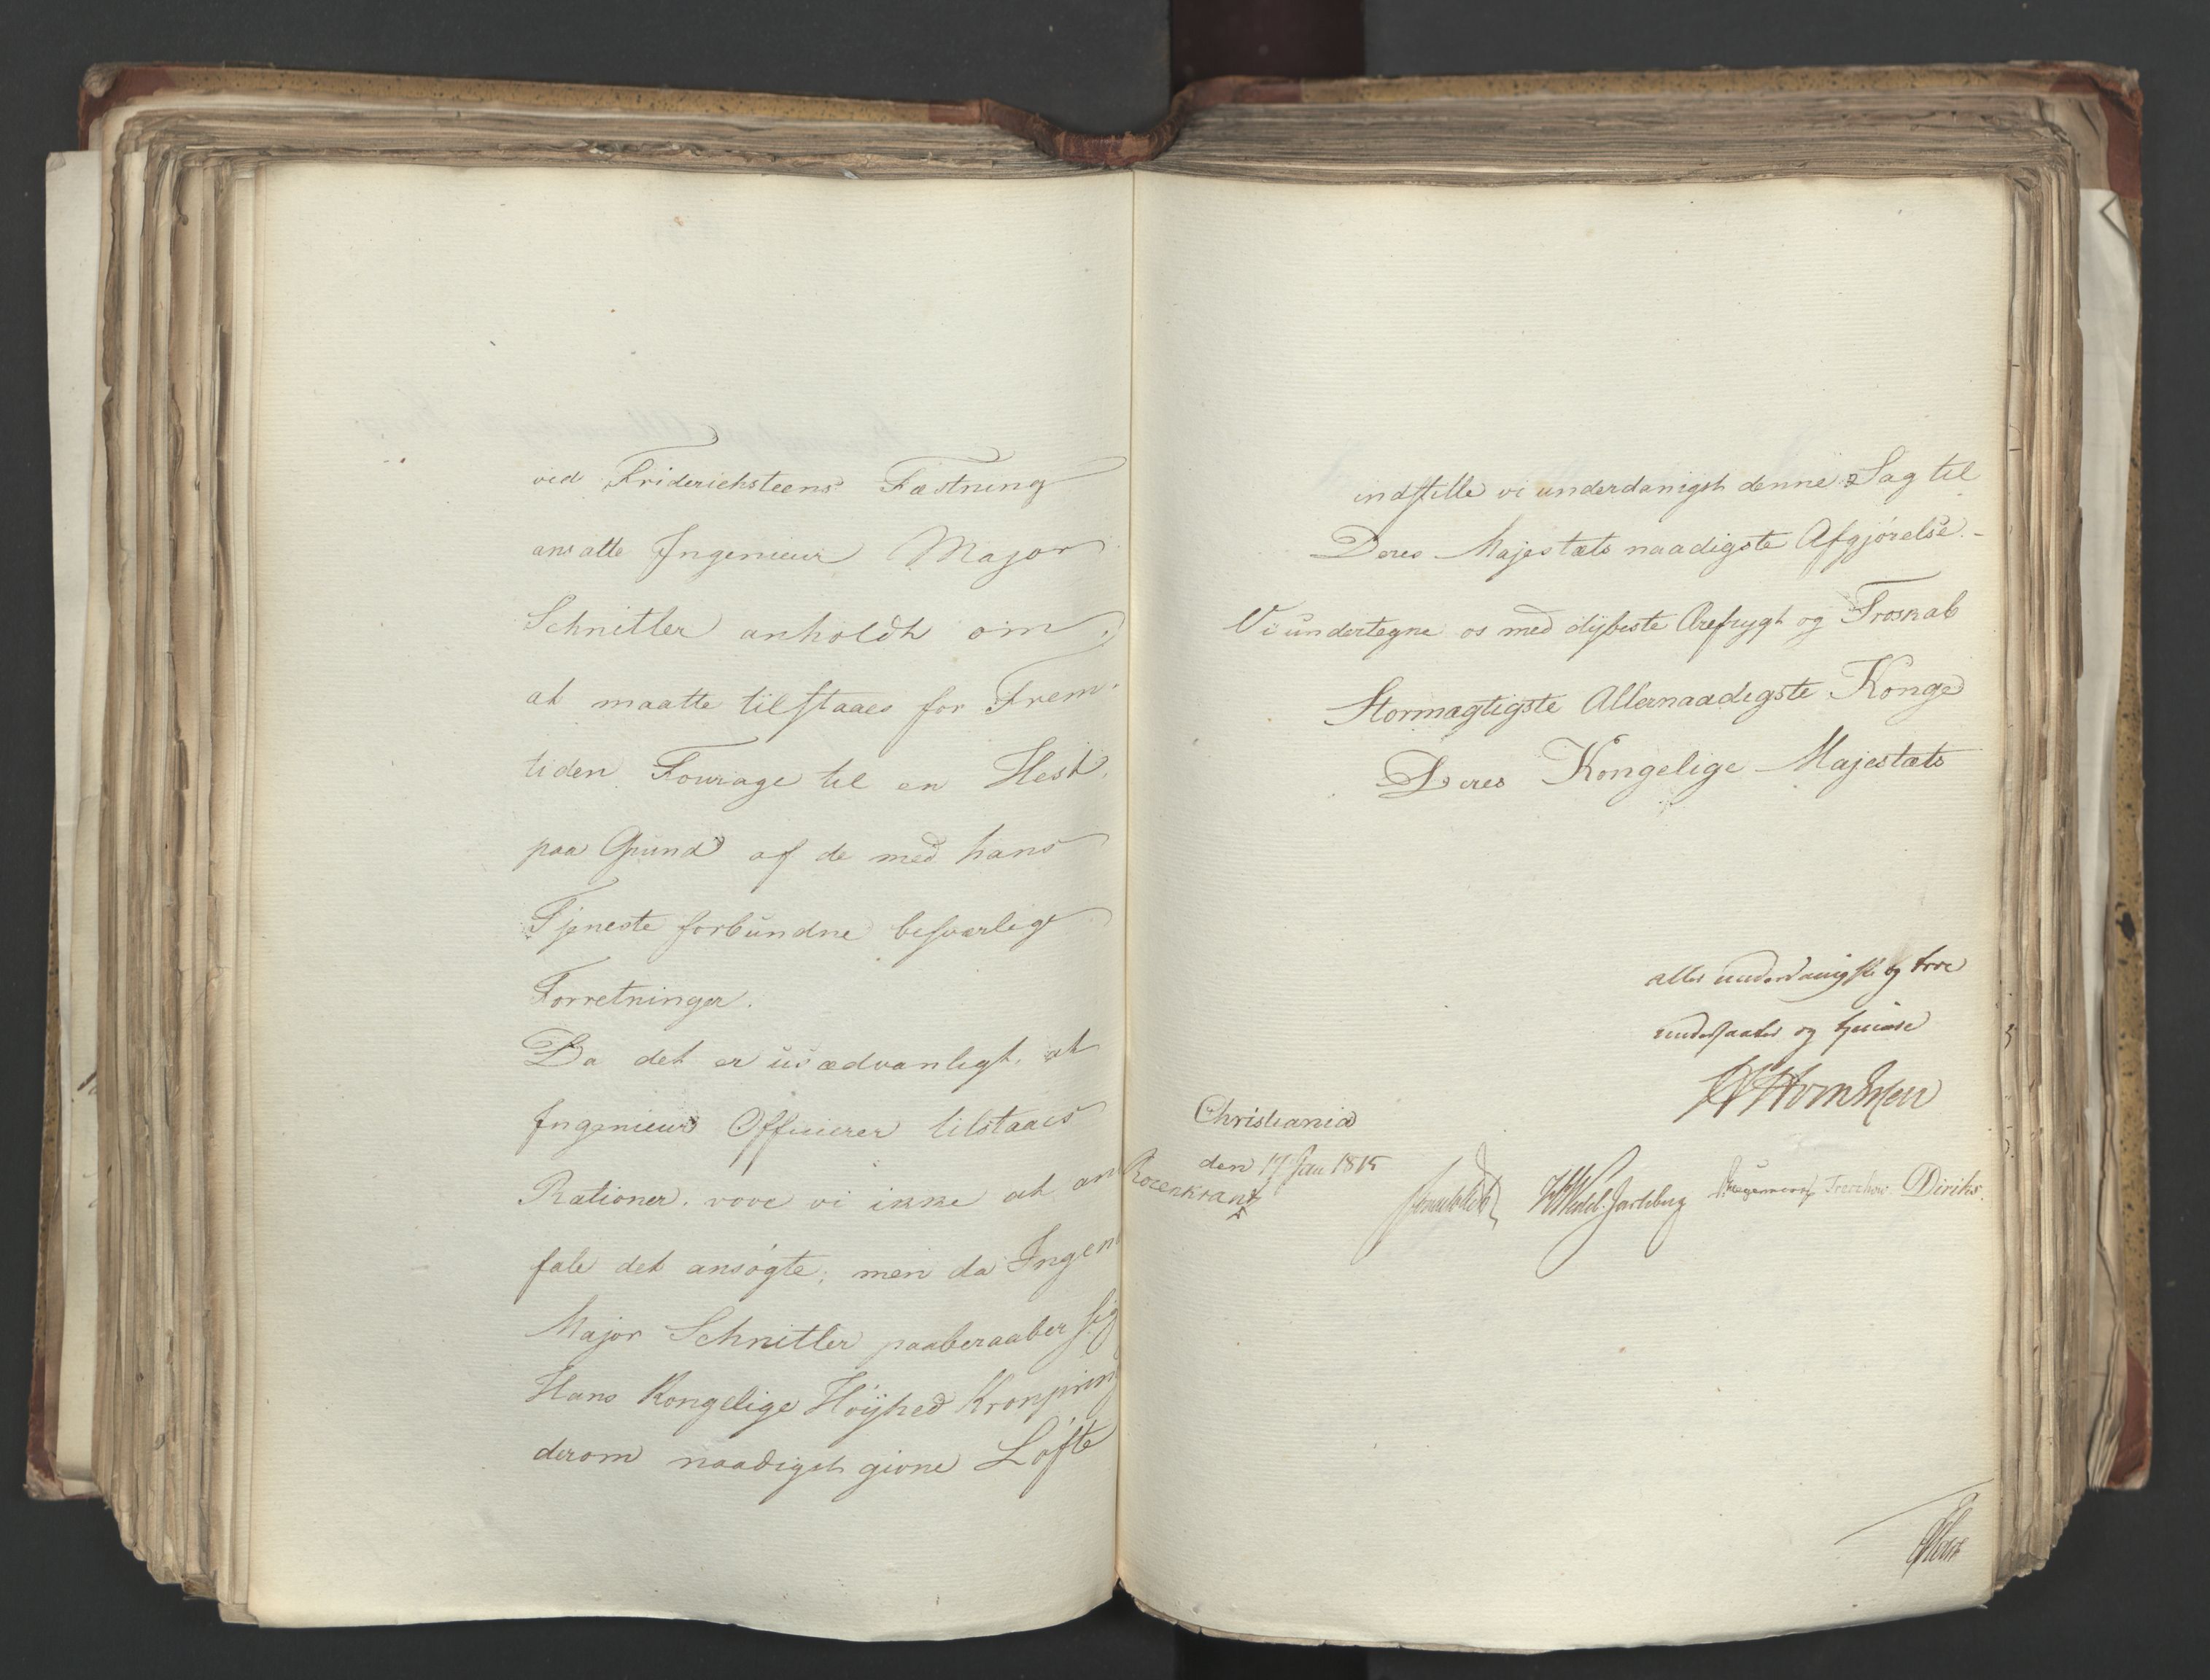 ved Friderichsteens Fæstning
ansatte Ingenieur Major
Schnitler anholdt om
at maatte tilstaaes for Frem-
tiden Fourage til en Hest,
paa Grund af de med hans
Tjeneste forbundne besværlige
Forretninger.
Da det er usædvanligt, at
Ingenieur Officierer tilstaaes
Rationer, vove vi ikke at an
fale det ansøgte; men da Ingen
Major Schnitler paaberaaber sig
Hans Kongelige Høyhed Kronprin
derom naadigst givne Løfte
indstille vi underdanigst denne Sag til
Deres Majestæts naadigste Afgjørelse.-
Vi undertegne os med dybeste Ærefrygt og Troskab
Stormægtigste Allernaadigste Konge
Deres Kongelige Majestæts
aller underdanigste og troe
undersaatter og tjenere
Christiania
den 17 Jan 1815
Rosenkrantz
Sommerhielm
HWedel-Jarlsberg
Hegermann
Treschow
Diriks